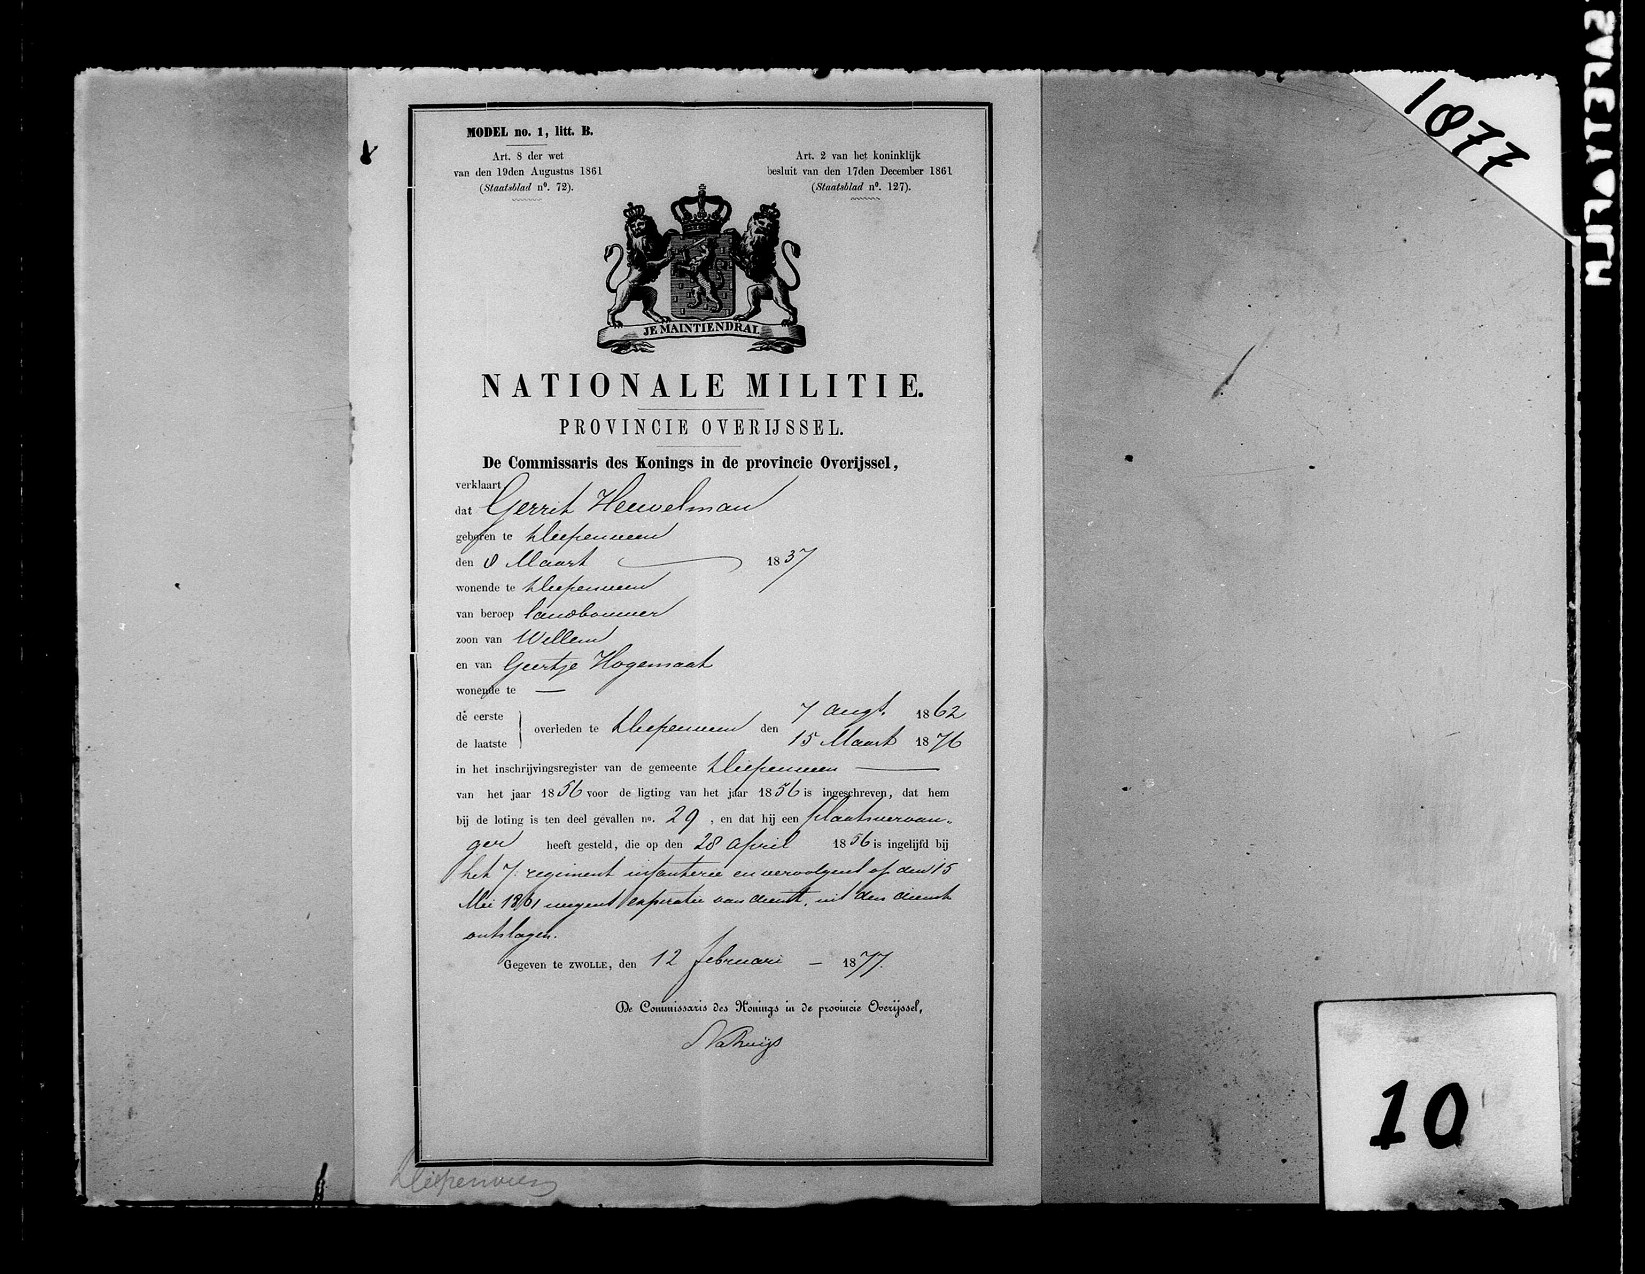 1877
MODEL no. 1, litt. B.
Art. 8 der wet
van den 19den Augustus 1861
(Staatsblad nº. 72).
Art. 2 van het koninklijk
besluit van den 17den December 1861
(Staatsblad nº. 127).
JE MAINTIENDRAI
NATIONALE MILITIE.
PROVINCIE OVERIJSSEL.
De Commissaris des Konings in de provincie Overijssel,
verklaart
dat Gerrit Heuvelman
geboren te Diepenveen
den 8 Maart 1837
wonende te Diepenveen
van beroep landbouwer
zoon van Willem
en van Geertje Hogemaat
wonende te —
de eerste overleden te Diepenveen den 7 Augt. 1862
de laatste 15 Maart 1876
in het inschrijvingsregister van de gemeente Diepenveen —
van het jaar 1856 voor de ligting van het jaar 1856 is ingeschreven, dat hem
bij de loting is ten deel gevallen no. 29, en dat hij een plaatsvervan-
ger heeft gesteld, die op den 28 April 1856 is ingelijfd bij
het 7. regiment infanterie en vervolgens op den 15
Mei 1861 wegens expiratie van dienst, uit den dienst
ontslagen.
Gegeven te ZWOLLE, den 12 Februari — 1877.
De Commissaris des Konings in de provincie Overijssel,
Nahuijs
Diepenveen
10